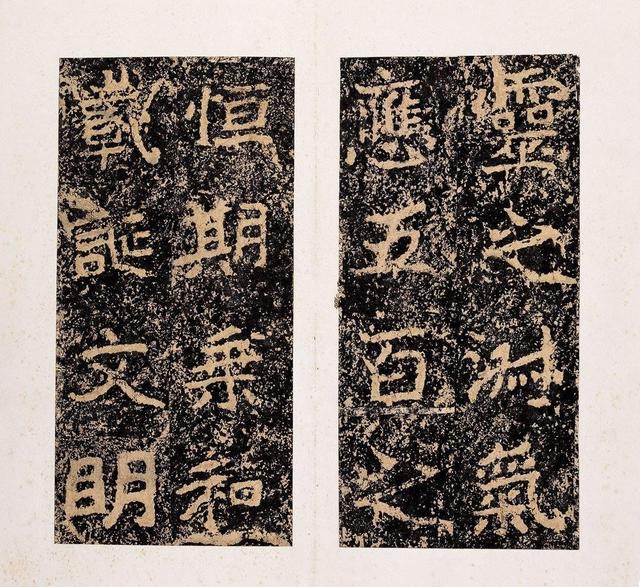 靈之淑氣
應五百之
恒期乘和
載誕文明